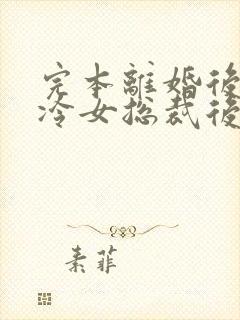 完本離婚後
冷女总裁後
素菲